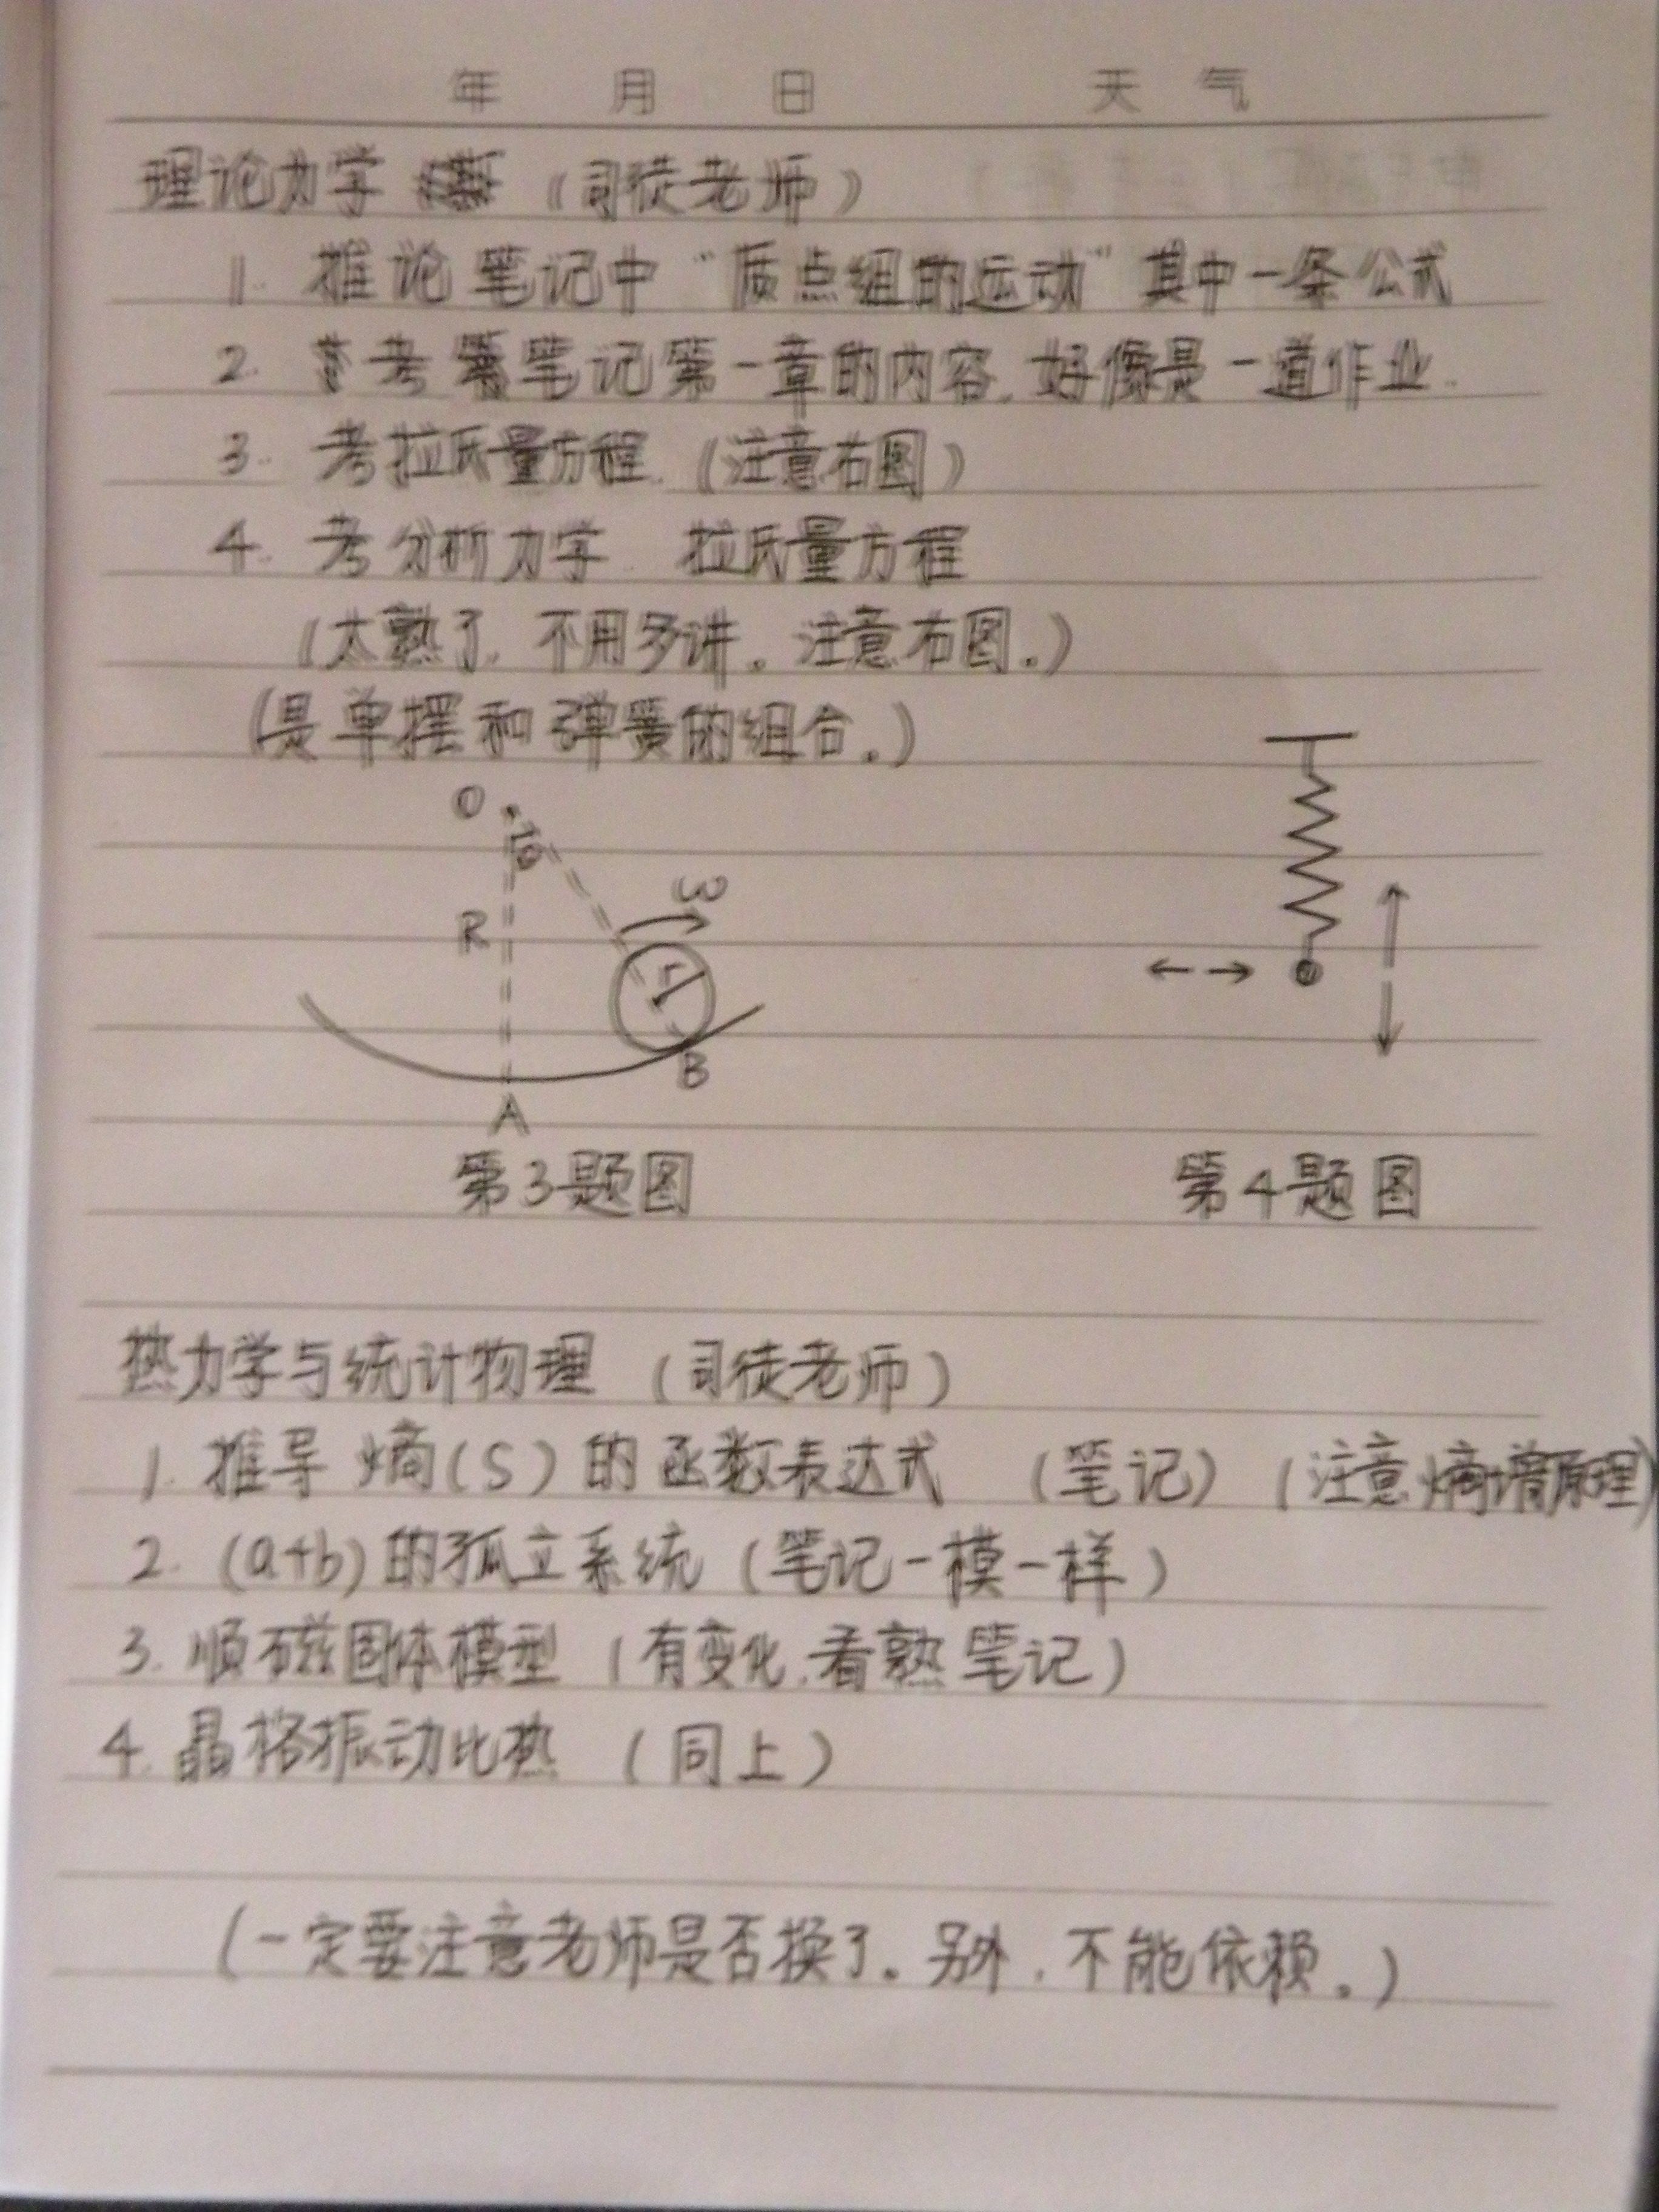 年 月 日 天 气
理论力学 (司徒老师)
1. 推论笔记中“质点组的运动”其中一条公式
2. 参考笔记第一章的内容,好像是一道作业.
3. 考拉氏量方程.(注意右图)
4. 考分析力学 拉氏量方程
(太熟了,不用多讲。注意右图。)
(是单摆和弹簧的组合。)
O
θ
ω
R
r
B
A
第3题图
第4题图
热力学与统计物理 (司徒老师)
1. 推导熵(S)的函数表达式 (笔记) (注意熵增原理)
2. (a+b)的孤立系统 (笔记一模一样)
3. 顺磁固体模型 (有变化,看熟笔记)
4. 晶格振动比热 (同上)
(一定要注意老师是否换了。另外,不能依赖。)